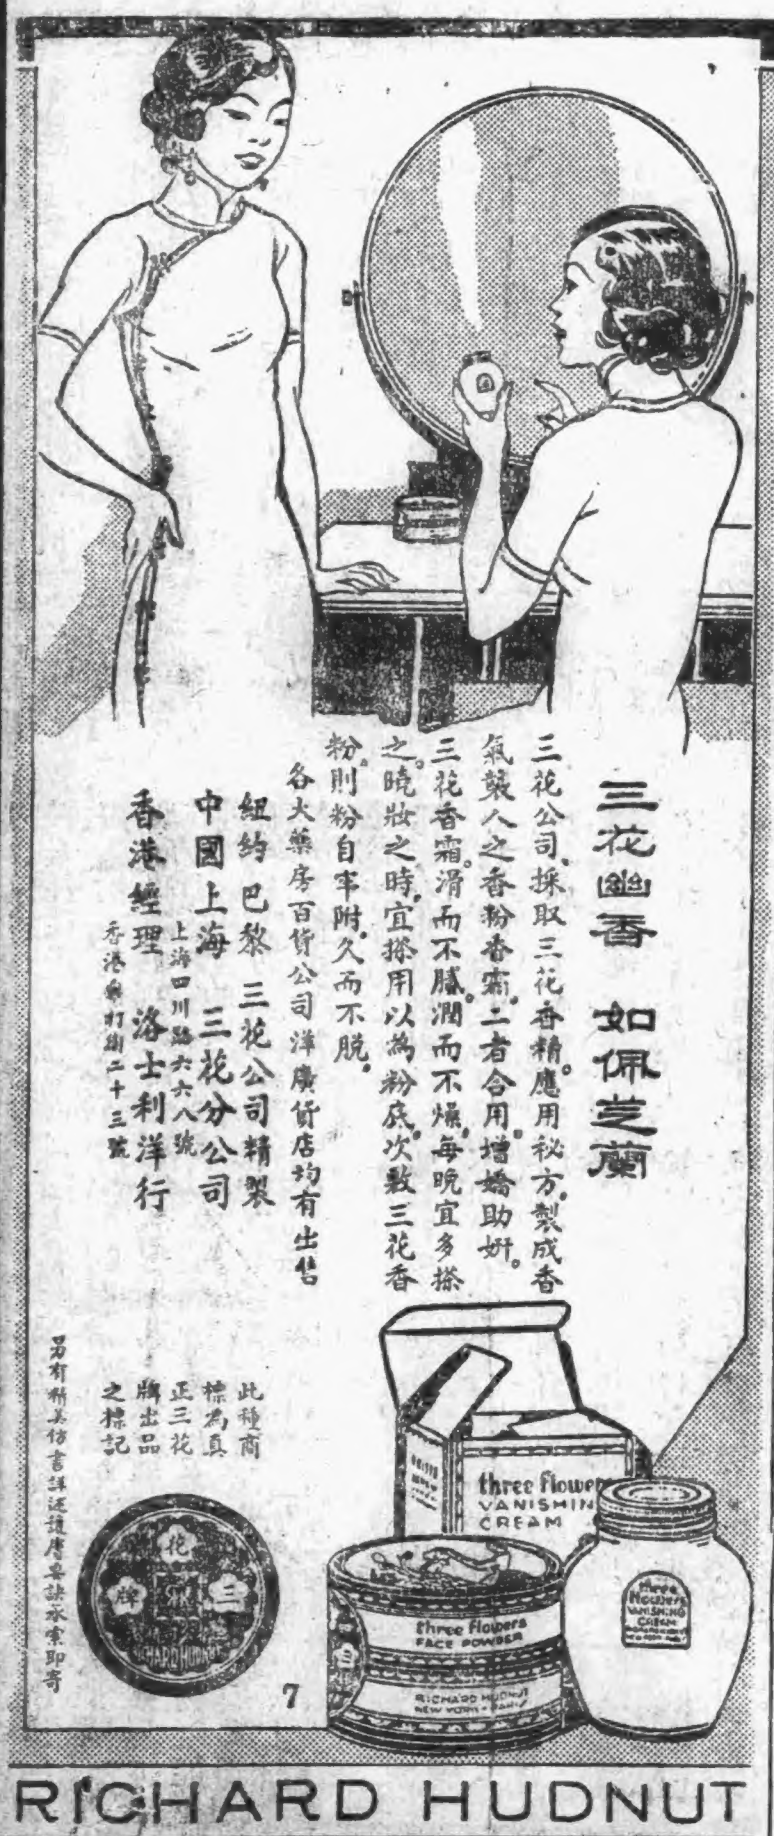 三花幽香 如佩芝蘭
三花公司、採取三花香精。應用秘方、製成香
氣襲人之香粉香霜。二者合用、增嬌助妍。
三花香霜。滑而不膩。潤而不燥。每晚宜多搽
之。曉妝之時、宜搽用以為粉底、次敷三花香
粉。則粉自牢附、久而不脫。
各大藥房百貨公司洋廣貨店均有出售
紐約 巴黎 三花公司精製
中國上海 三花分公司
上海四川路六六八號
香港經理 洛士利洋行
香港 打街二十三號
此種商
標為真
正三花
牌出品
之標記
另有精美仿書詳述護膚要訣承索即寄
花
三
牌
RICHARD HUDNUT
7
three flowers
VANISHIN
CREAM
three flowers
FACE POWDER
RICHARD HUDNUT
NEW YORK - PARIS
three
flowers
VANISHING
CREAM
RICHARD HUDNUT